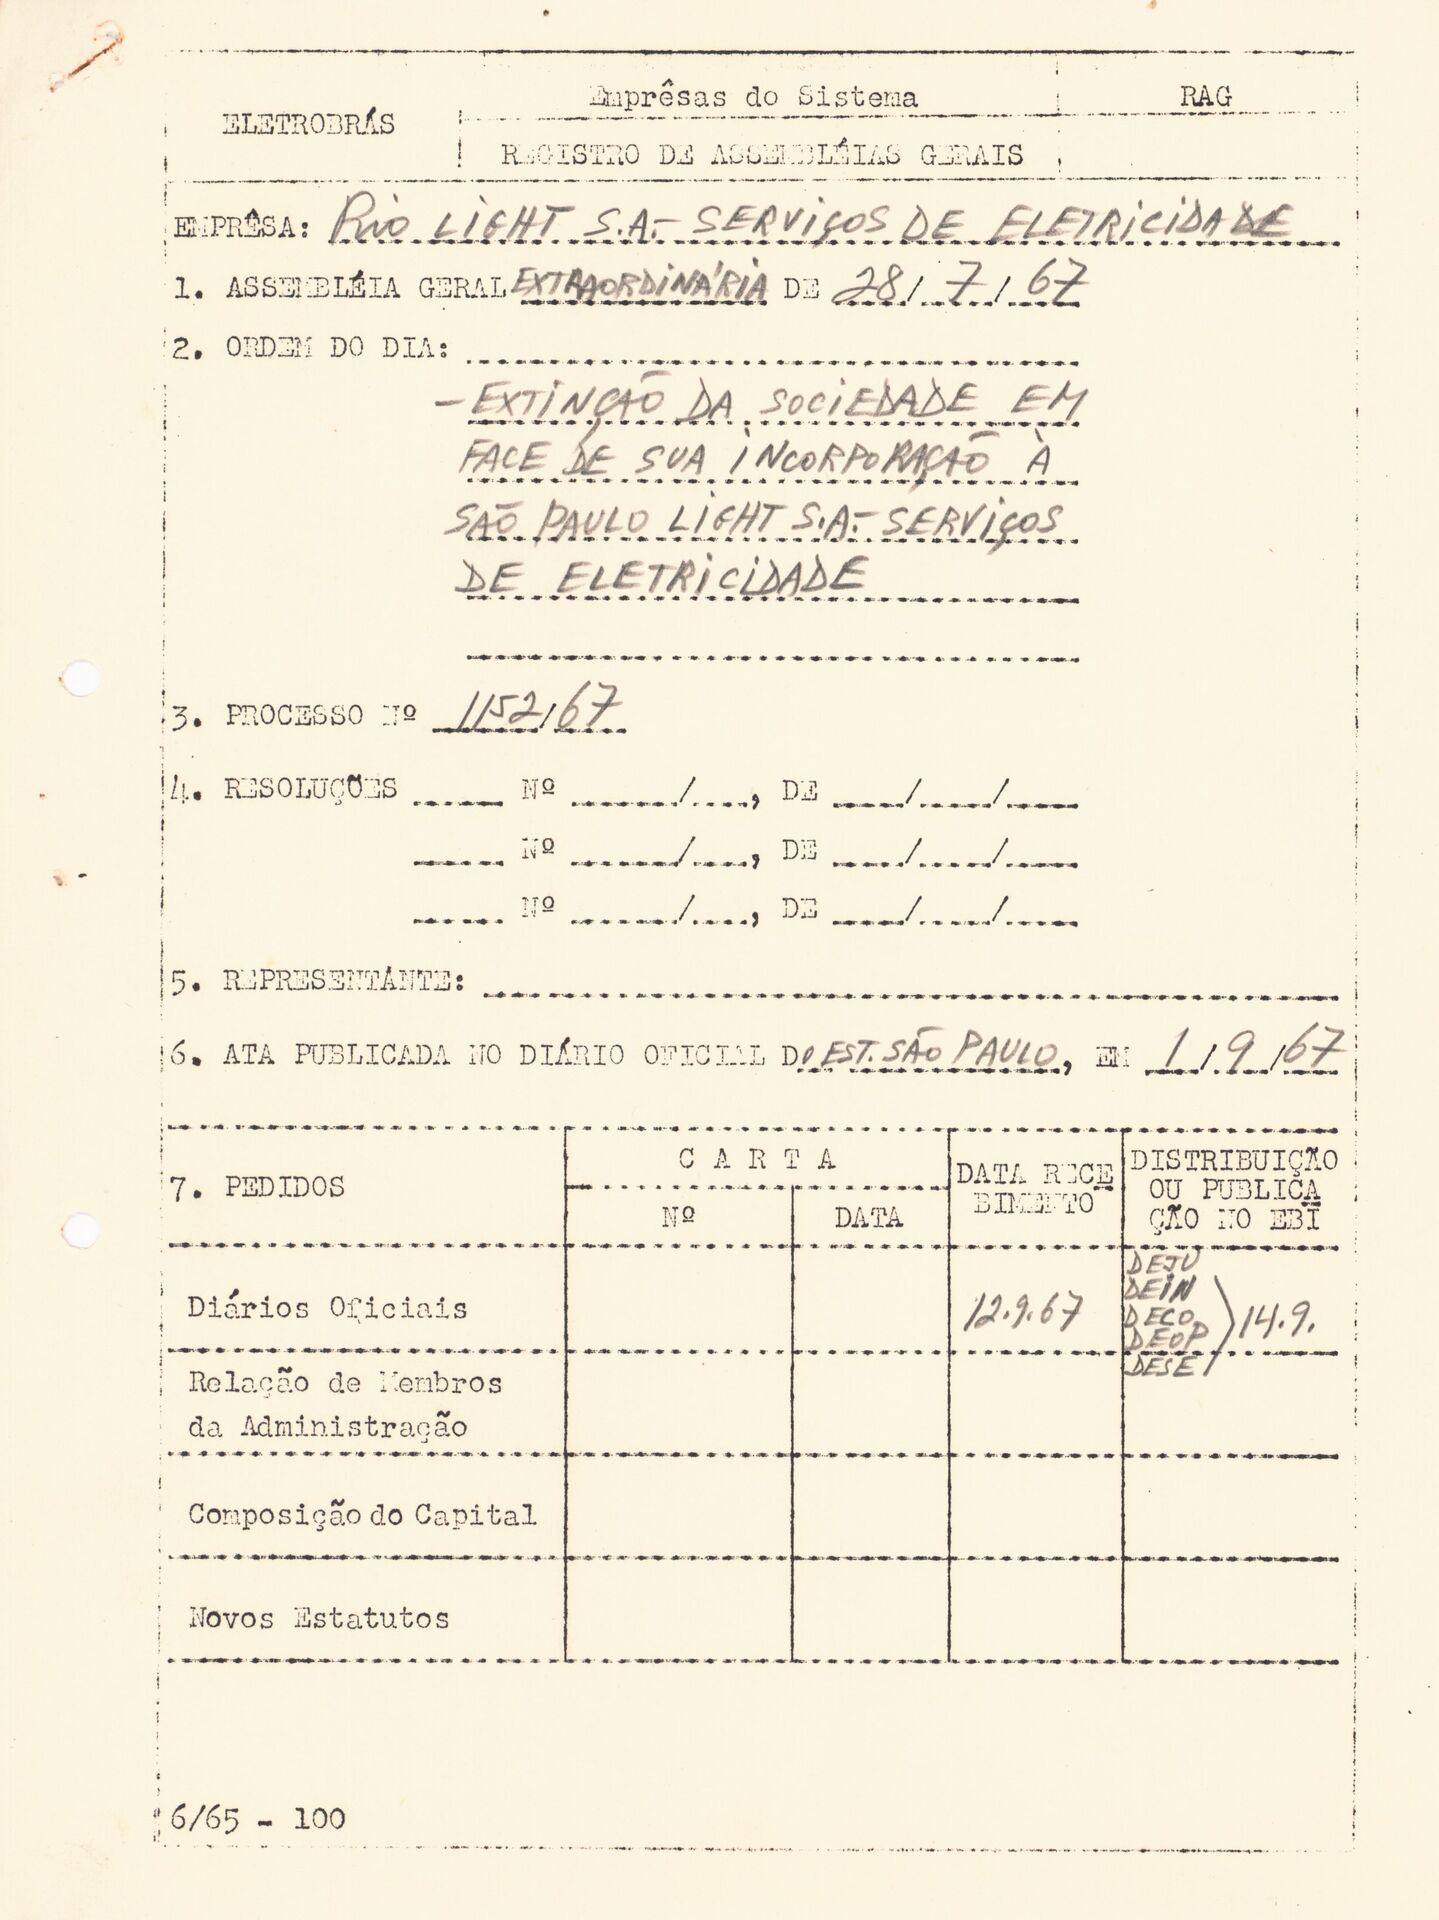 Emprêsas do Sistema RAG
ELETROBRÁS
REGISTRO DE ASSEMBLÉIAS GERAIS
EMPRÊSA: RIO LIGHT S.A.- SERVIÇOS DE ELETRICIDADE
1. ASSEMBLÉIA GERAL EXTRAORDINÁRIA DE 28/7/67
2. ORDEM DO DIA:
- EXTINÇÃO DA SOCIEDADE EM
FACE DE SUA INCORPORAÇÃO À
SÃO PAULO LIGHT S.A.- SERVIÇOS
DE ELETRICIDADE
3. PROCESSO Nº 1152/67
4. RESOLUÇÕES Nº /, DE / /
Nº /, DE / /
Nº /, DE / /
5. REPRESENTANTE:
6. ATA PUBLICADA NO DIÁRIO OFICIAL DO EST. SÃO PAULO, EM 1/9/67
7. PEDIDOS
C A R T A
Nº DATA
DATA RECE
BIMENTO
DISTRIBUIÇÃO
OU PUBLICA
ÇÃO NO EBI
Diários Oficiais
12.9.67
DEJU
DEIN
DECO
DEOP
DESE
14.9.
Relação de Membros
da Administração
Composição do Capital
Novos Estatutos
6/65 - 100